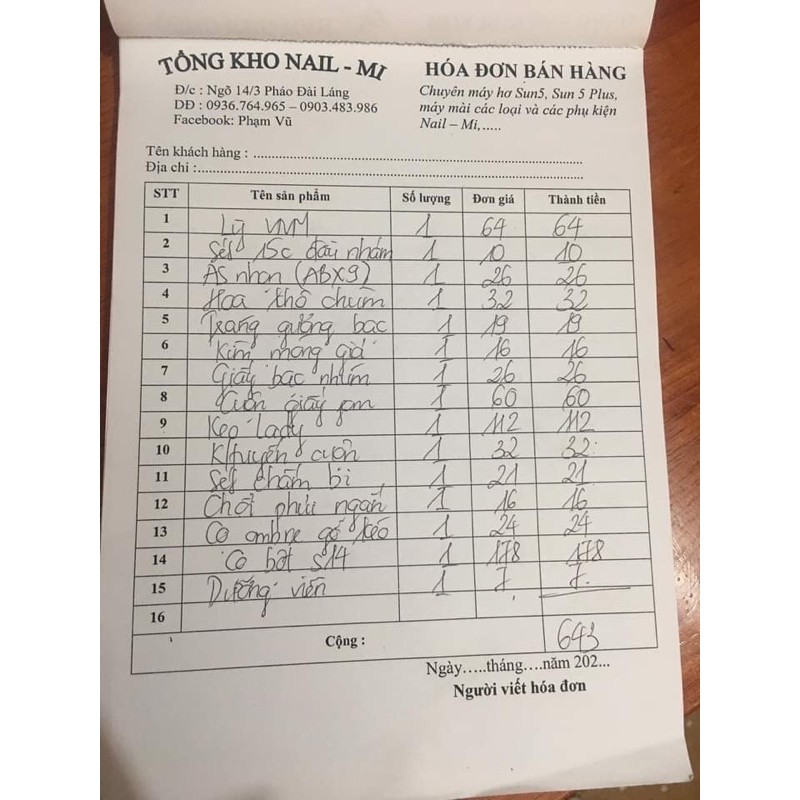 TỔNG KHO NAIL - MI
Đ/c : Ngõ 14/3 Pháo Đài Láng
DĐ : 0936.764.965 – 0903.483.986
Facebook: Phạm Vũ
HÓA ĐƠN BÁN HÀNG
Chuyên máy hơ Sun5, Sun 5 Plus,
máy mài các loại và các phụ kiện
Nail – Mi,.....
Tên khách hàng :
Địa chỉ :
STT Tên sản phẩm Số lượng Đơn giá Thành tiền
1 Lỳ VVM 1 64 64
2 Set 15c đầu nhám 1 10 10
3 AS nhọn (ABX9) 1 26 26
4 Hoa khô chùm 1 32 32
5 Tráng gương bạc 1 19 19
6 Kìm móng giả 1 16 16
7 Giấy bạc nhím 1 26 26
8 Cuộn giấy 1 60 60
9 Keo lady 1 112 112
10 Khuyên cuộn 1 32 32
11 Set chấm bi 1 21 21
12 Chổi phủi ngắn 1 16 16
13 Cọ ombre gỗ 1 24 24
14 Cọ bột S14 1 178 178
15 Dưỡng viên 1 7. 7.
16
Cộng : 643
Ngày.....tháng....năm 202...
Người viết hóa đơn